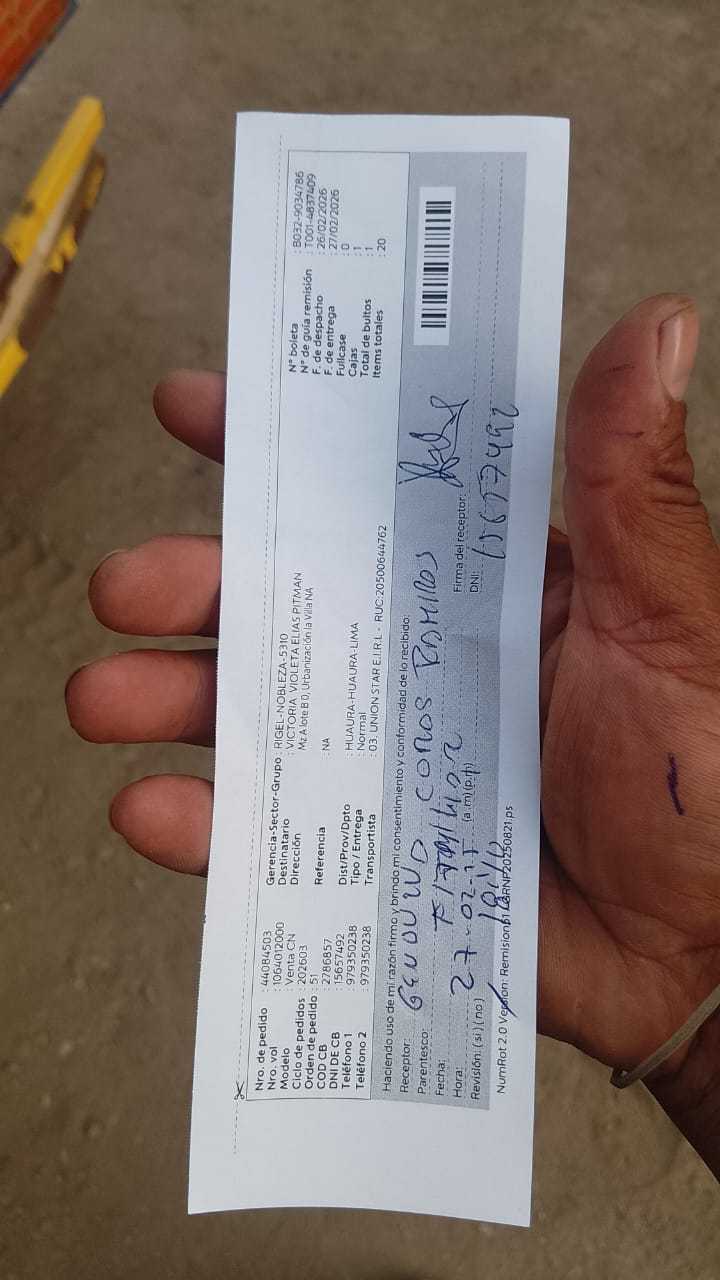 Nro. de pedido : 44084503
Nro. vol : 1064012000
Modelo : Venta CN
Ciclo de pedidos : 202603
Orden de pedido : 51
COD CB : 2786857
DNI DE CB : 15657492
Teléfono 1 : 979350238
Teléfono 2 : 979350238
Gerencia-Sector-Grupo : RIGEL-NOBLEZA-5310
Destinatario : VICTORIA VIOLETA ELIAS PITMAN
Dirección : Mz A lote B 0, Urbanización la Villa NA
Referencia : NA
Dist/Prov/Dpto : HUAURA-HUAURA-LIMA
Tipo / Entrega : Normal
Transportista : 03. UNION STAR E.I.R.L - RUC:20500644762
N° boleta : B032-9034786
N° de guía remisión : T001-4837409
F. de despacho : 26/02/2026
F. de entrega : 27/02/2026
Fullcase : 0
Cajas : 1
Total de bultos : 1
Items totales : 20
Haciendo uso de mi razón firmo y brindo mi consentimiento y conformidad de lo recibido:
Receptor: COROS RAMIROS
Parentesco:
Fecha: 27-02-
Hora: (a.m)(p.m)
Revisión: (si) (no)
Firma del receptor:
DNI: 15657492
NumRot: 2.0 Versión: Remision